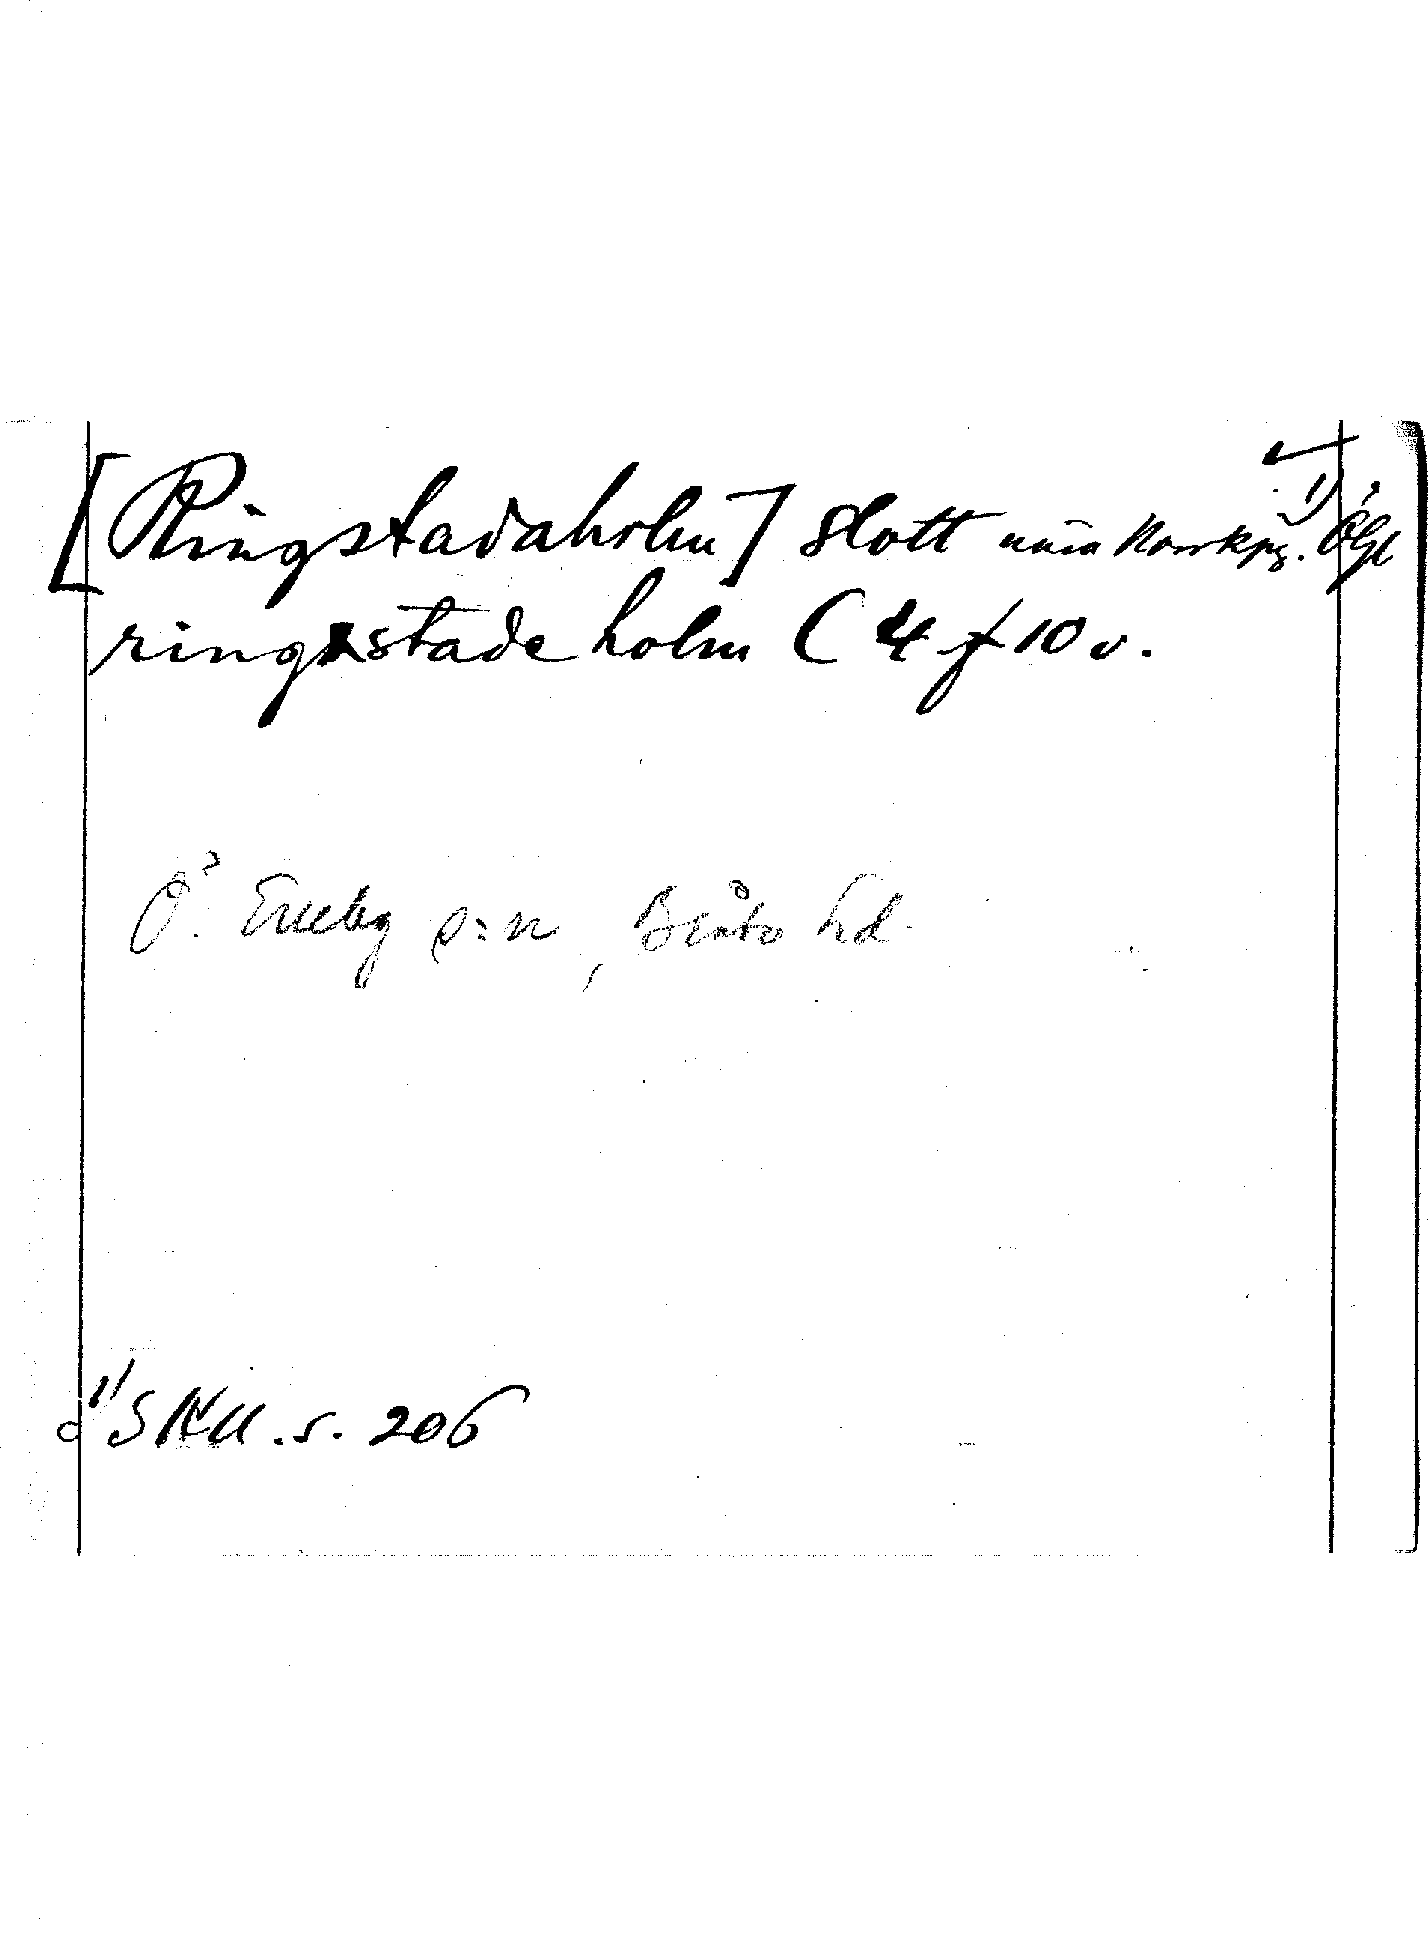 [Ringstadaholm] slott nära Norrkpg. 1) Ögl
ringstade holm C 4 f 10 v.
Ö. Eneby s:n, Bråbo hd.
1) SRM. s. 206